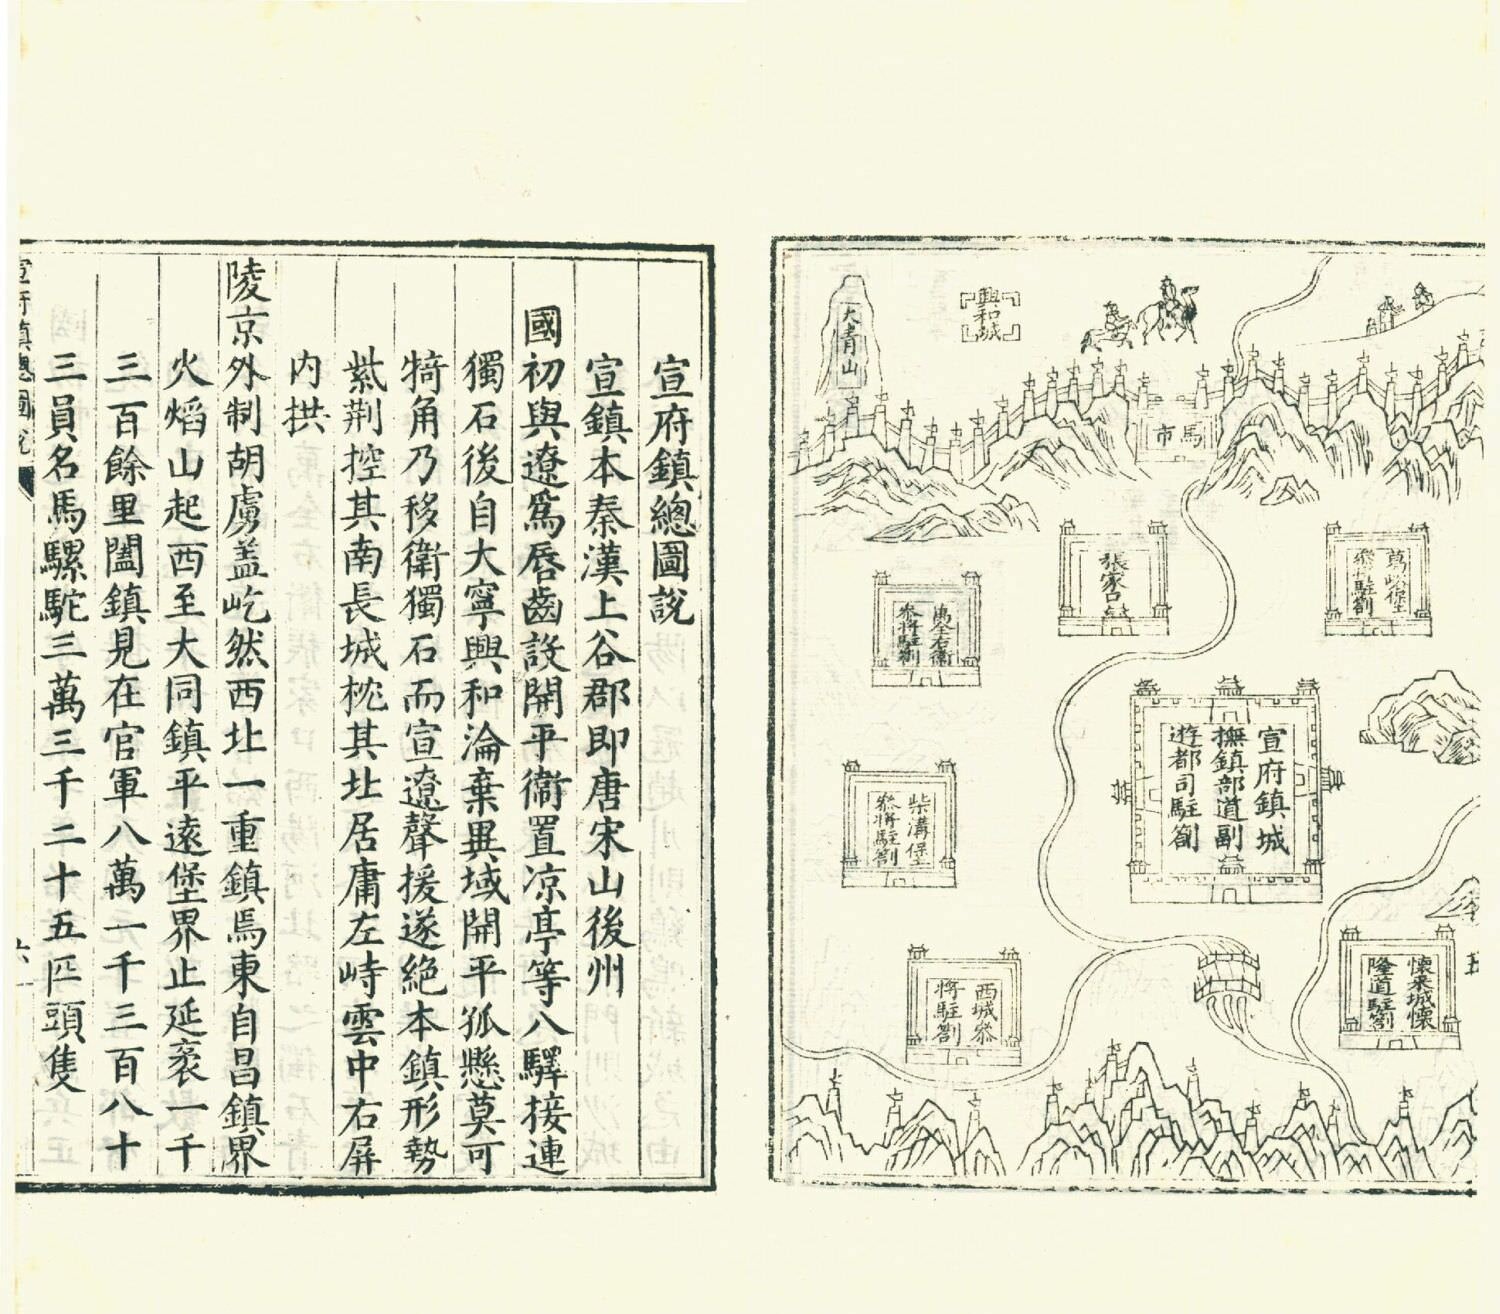 大青山
興和城
馬市
萬全右衛
參將駐劄
張家口
參將駐劄
宣府鎮城
撫鎮部道副
遊都司駐劄
柴溝堡
參將駐劄
西城參
將駐劄
懷來城懷
隆道駐劄
五
宣府鎮總圖說
宣鎮本秦漢上谷郡即唐宋山後州
國初與遼爲唇齒設開平衞置凉亭等八驛接連
獨石後自大寧興和淪棄異域開平孤懸莫可
犄角乃移衛獨石而宣遼聲援遂絕本鎮形勢
紫荆控其南長城枕其北居庸左峙雲中右屏
内拱
陵京外制胡虜盖屹然西北一重鎮焉東自昌鎮界
火焰山起西至大同鎮平遠堡界止延袤一千
三百餘里闔鎮見在官軍八萬一千三百八十
三員名馬騾駝三萬三千二十五匹頭隻
宣府鎮總圖說
六